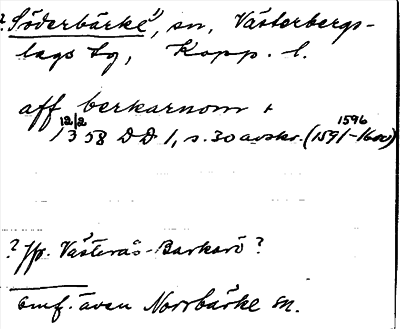 ? Söderbärke", sn, Västerbergs-
lags tg, Kopp. l.
aff berkarnom +
12/2 1596
1358 DD 1, s. 30 avskr. (1591-1600)
? Jfr. Västerås-Barkarö?
Omf. även Norrbärke sn.